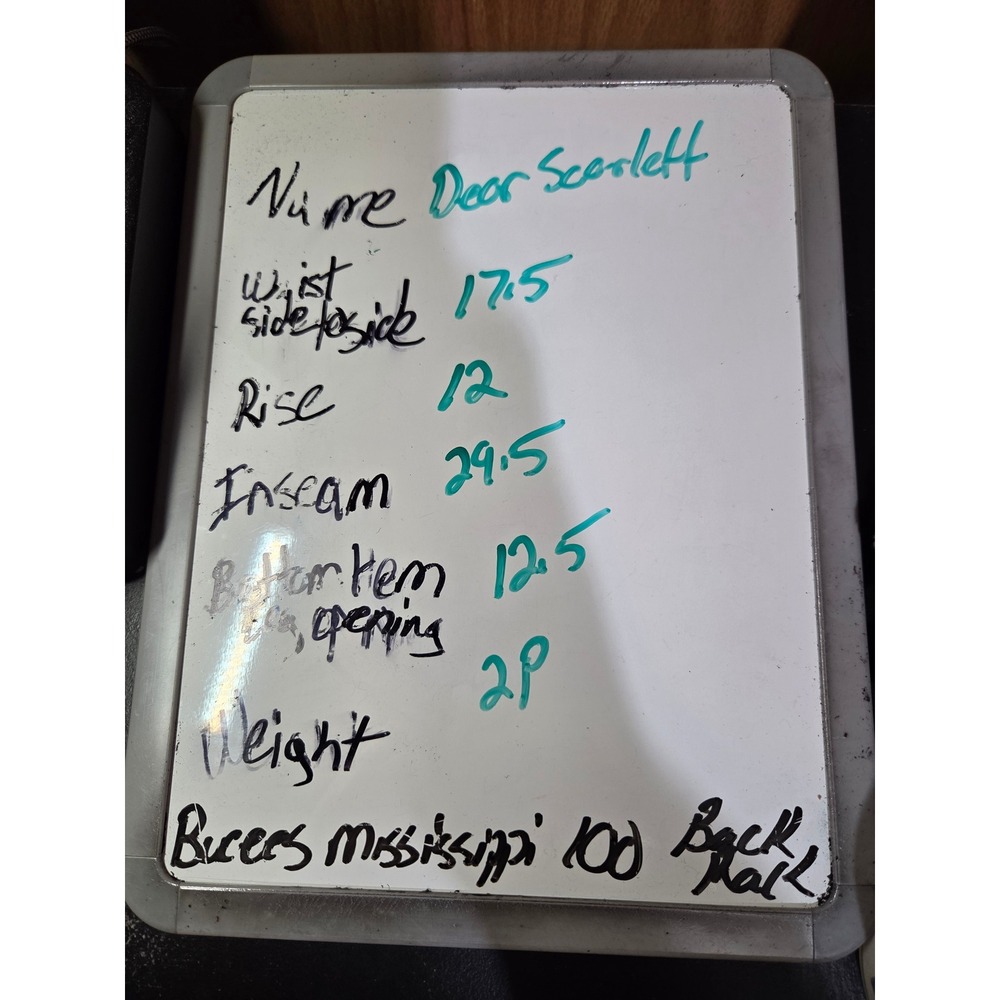 Name Dear Scarlett
Waist 17.5
side to side
Rise 12
Inseam 29.5
Bottom Hem 12.5
Leg opening
2P
Weight
Bucees Mississippi 100 Back
Mark